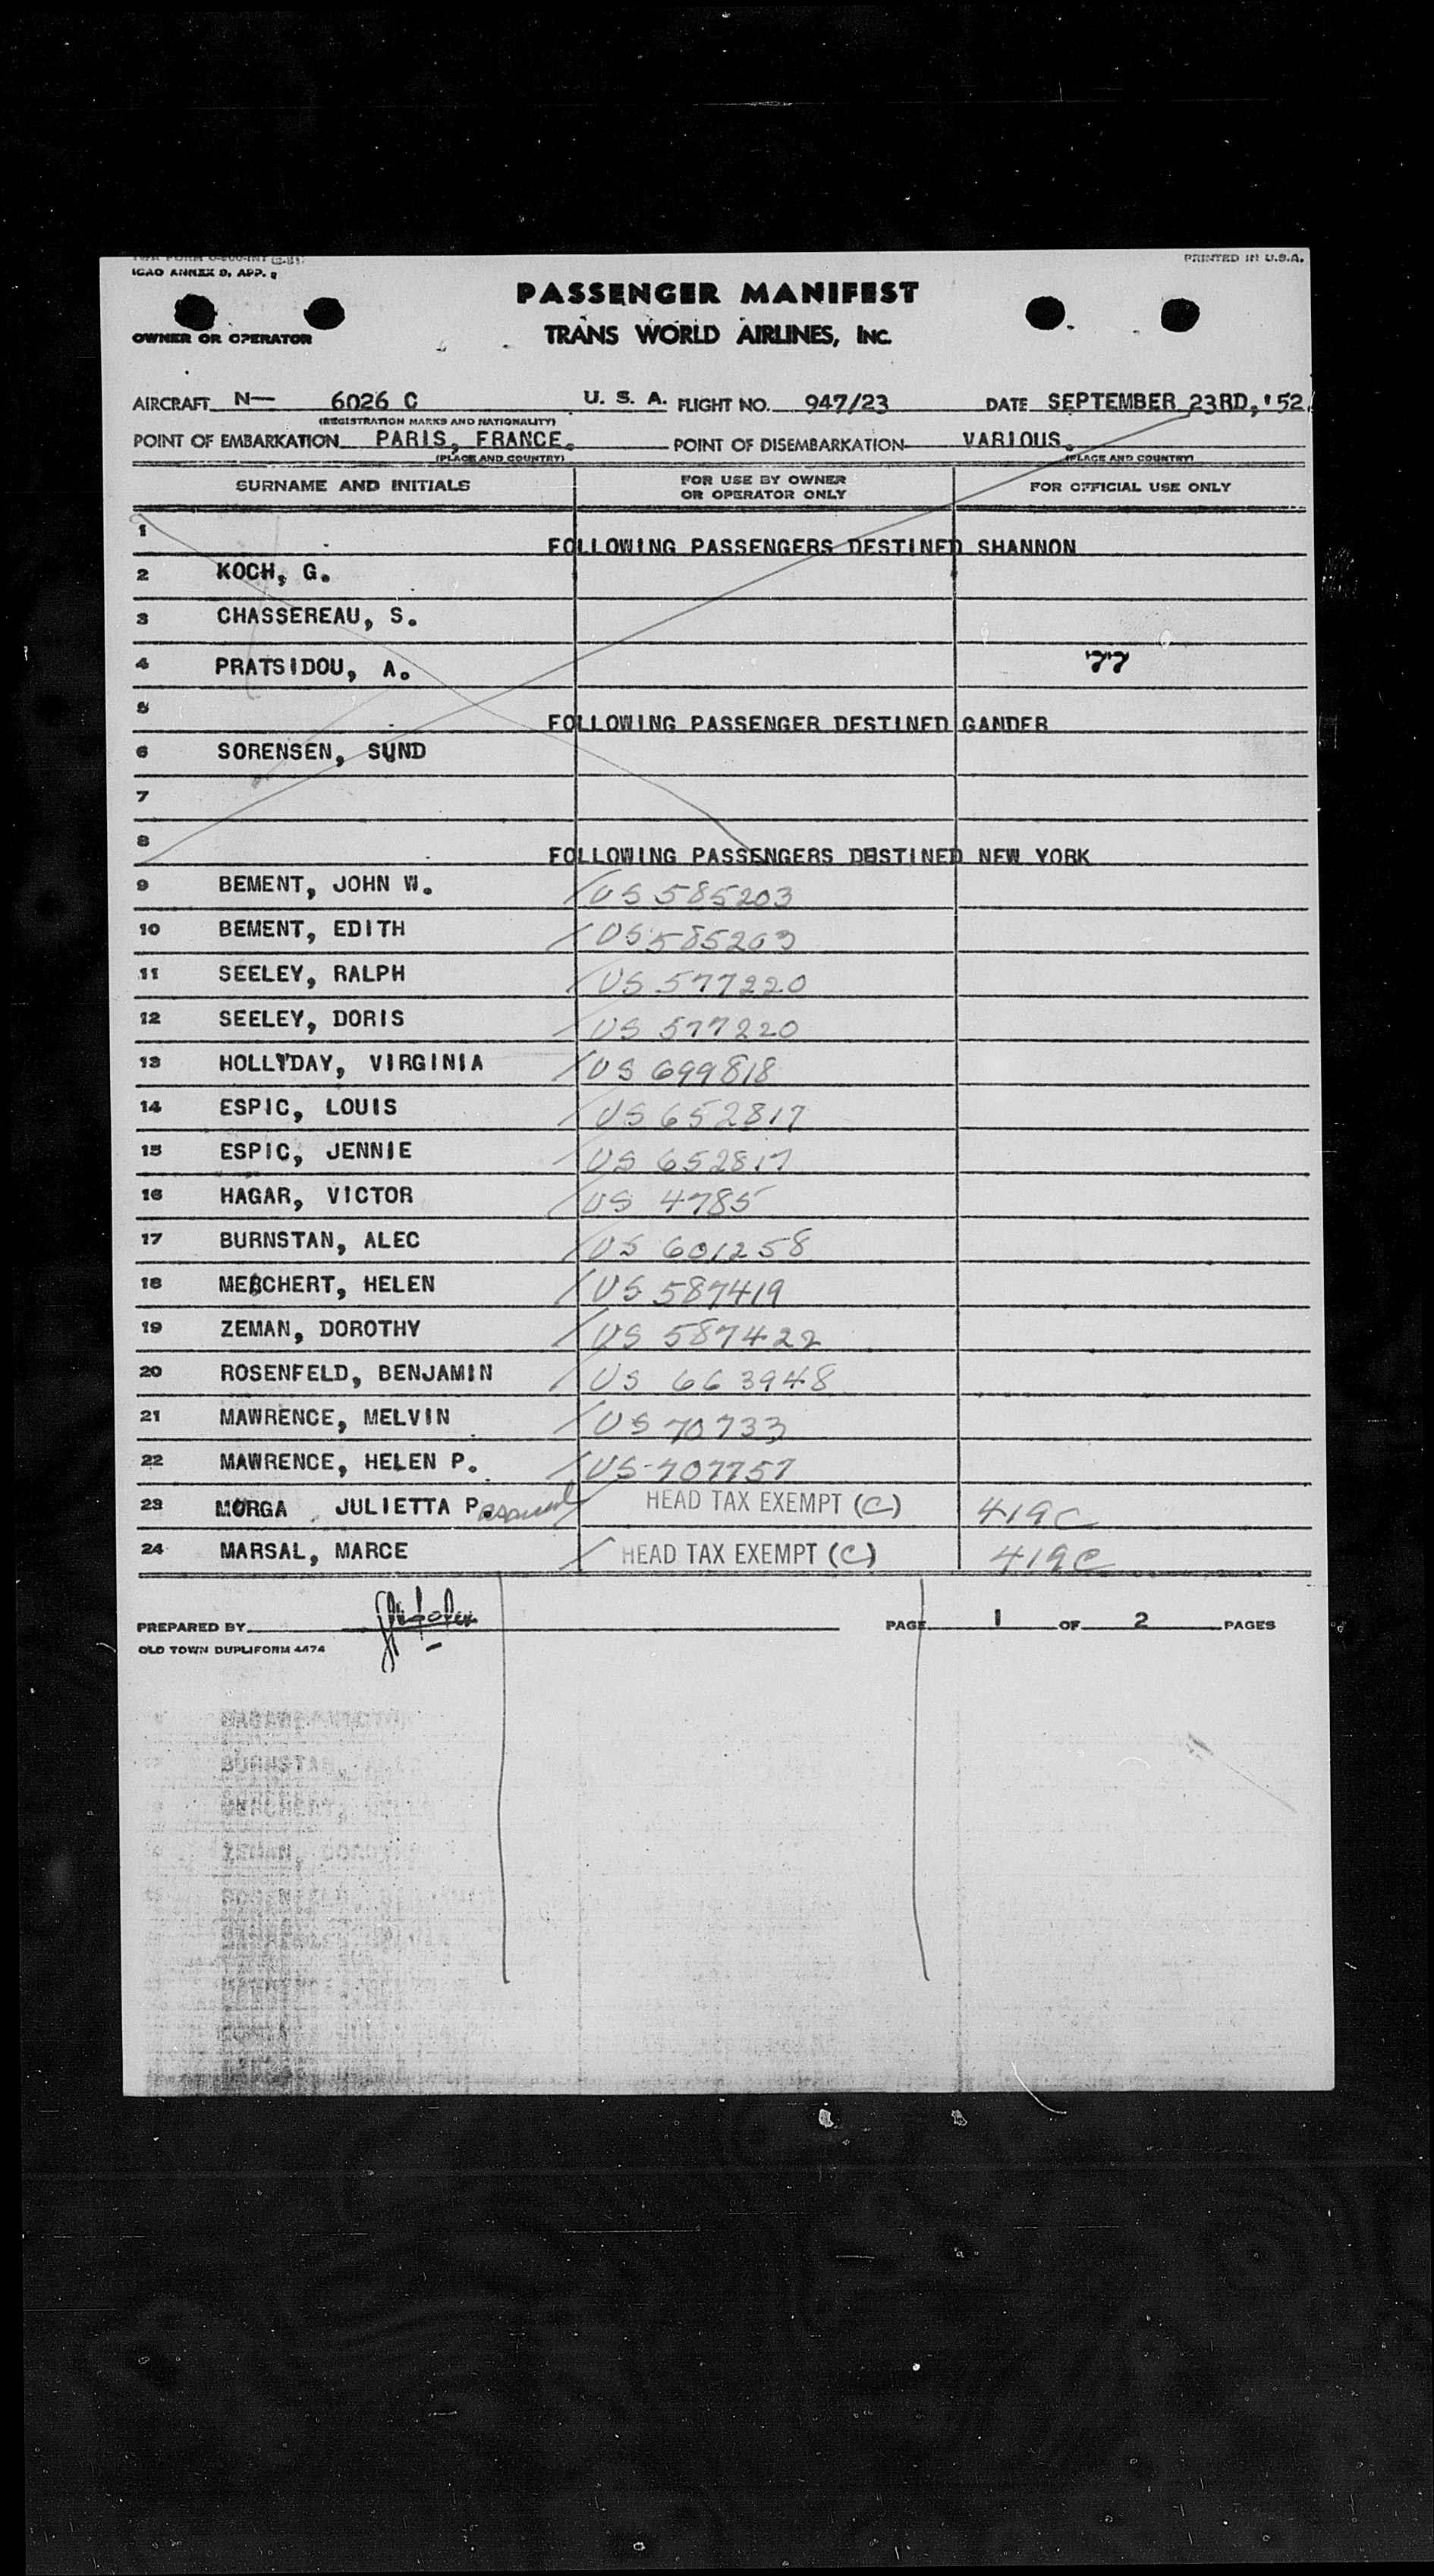 ICAO ANNEX 9, APP.
PRINTED IN U.S.A.
PASSENGER MANIFEST
TRANS WORLD AIRLINES, INC.
OWNER OR OPERATOR
AIRCRAFT N— 6026 C U. S. A. FLIGHT NO. 947/23 DATE SEPTEMBER 23RD, '52
(REGISTRATION MARKS AND NATIONALITY)
POINT OF EMBARKATION PARIS, FRANCE. POINT OF DISEMBARKATION VARIOUS.
(PLACE AND COUNTRY) (PLACE AND COUNTRY)
SURNAME AND INITIALS FOR USE BY OWNER OR OPERATOR ONLY FOR OFFICIAL USE ONLY
1 FOLLOWING PASSENGERS DESTINED SHANNON
2 KOCH, G.
3 CHASSEREAU, S.
4 PRATSIDOU, A. 77
5 FOLLOWING PASSENGER DESTINED GANDER
6 SORENSEN, SUND
7
8 FOLLOWING PASSENGERS DESTINED NEW YORK
9 BEMENT, JOHN W. US 585203
10 BEMENT, EDITH US 585203
11 SEELEY, RALPH US 577220
12 SEELEY, DORIS US 577220
13 HOLLYDAY, VIRGINIA US 699818
14 ESPIC, LOUIS US 652817
15 ESPIC, JENNIE US 652817
16 HAGAR, VICTOR US 4785
17 BURNSTAN, ALEC US 601258
18 MERCHERT, HELEN US 587419
19 ZEMAN, DOROTHY US 587422
20 ROSENFELD, BENJAMIN US 663948
21 MAWRENCE, MELVIN US 70733
22 MAWRENCE, HELEN P. US 707757
23 MORGA JULIETTA P. HEAD TAX EXEMPT (C) 419C
24 MARSAL, MARCE HEAD TAX EXEMPT (C) 419C
PREPARED BY PAGE 1 OF 2 PAGES
OLD TOWN DUPLIFORM 4474